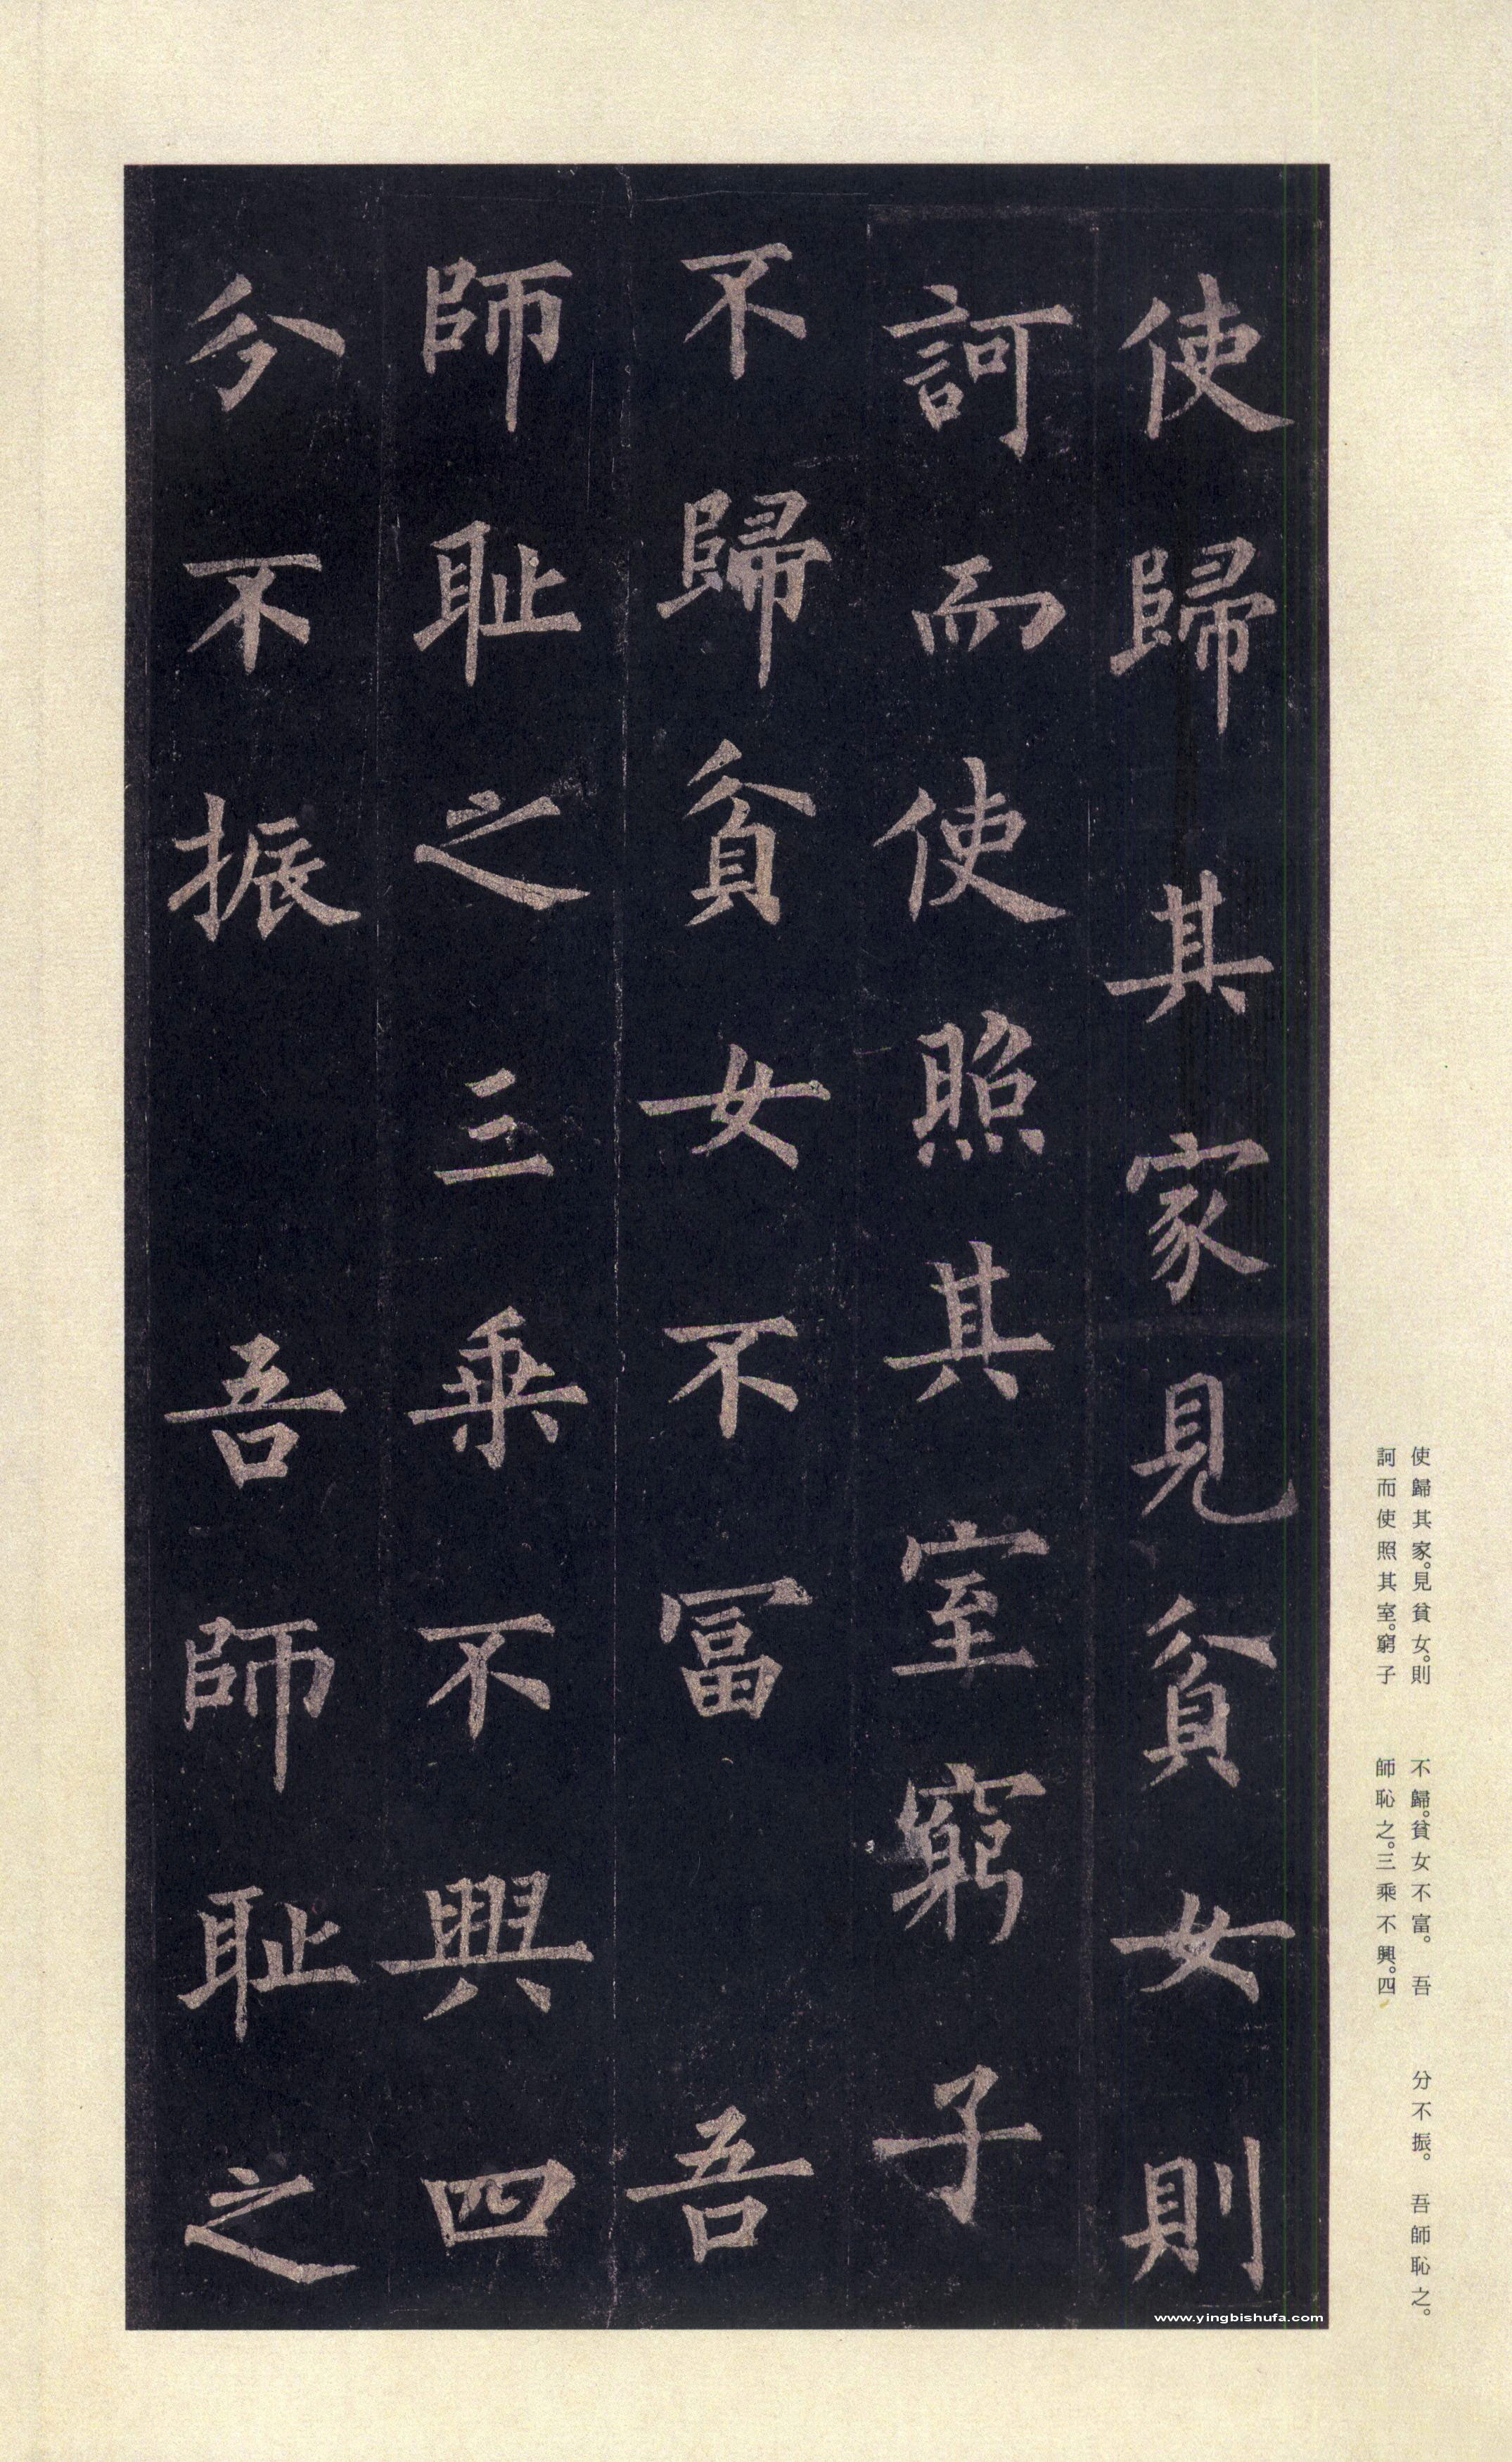 使歸其家見貧女則
訶而使照其室窮子
不歸貧女不冨　吾
師耻之三乗不興四
分不振　吾師耻之
使歸其家。見貧女。則
訶而使照其室。窮子
不歸。貧女不富。　吾
師恥之。三乘不興。四
分不振。　吾師恥之。
www.yingbishufa.com